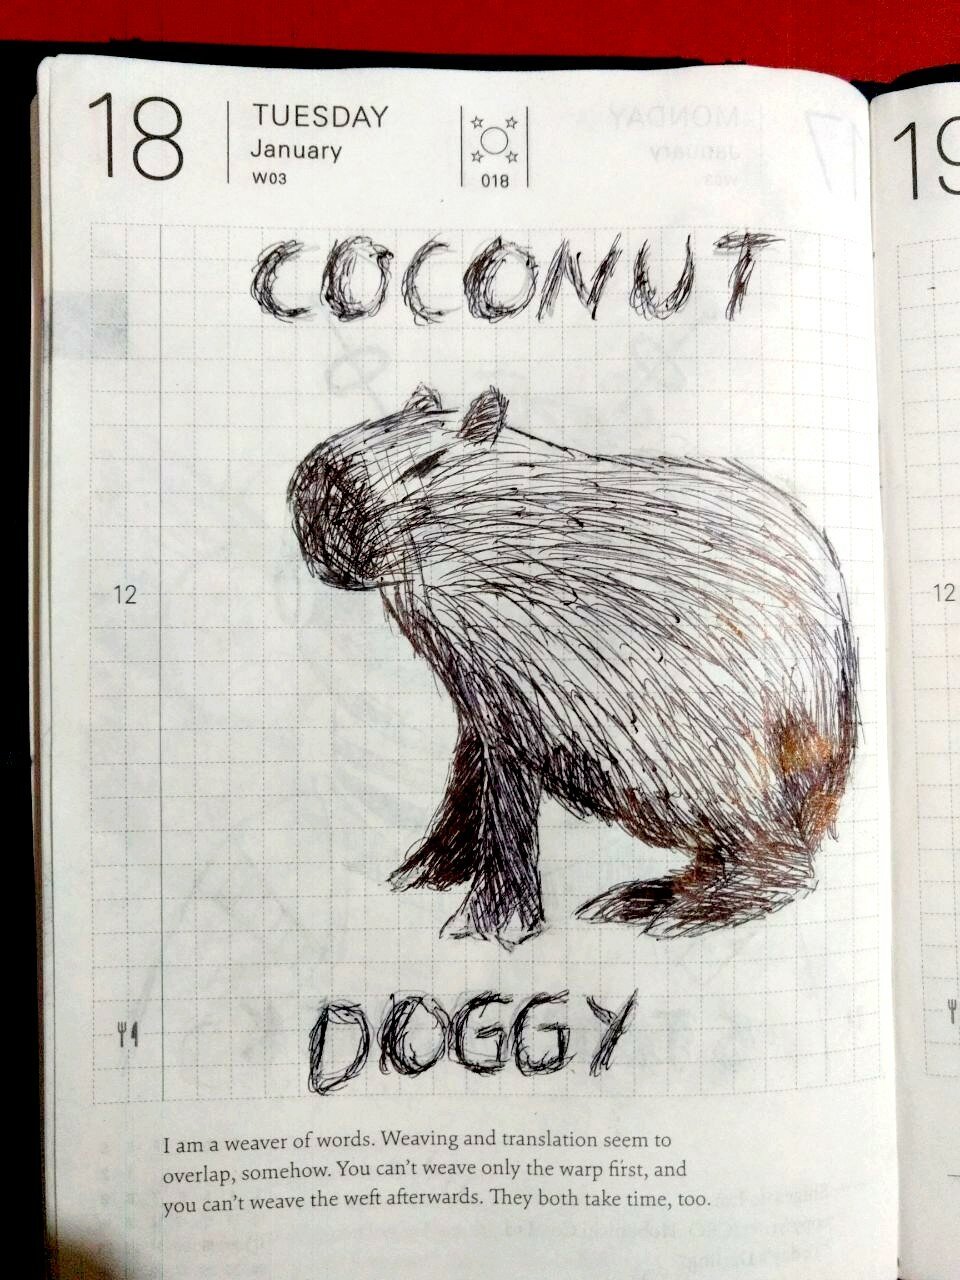 18
TUESDAY
January
W03
018
19
COCONUT
12
12
DOGGY
I am a weaver of words. Weaving and translation seem to
overlap, somehow. You can't weave only the warp first, and
you can't weave the weft afterwards. They both take time, too.